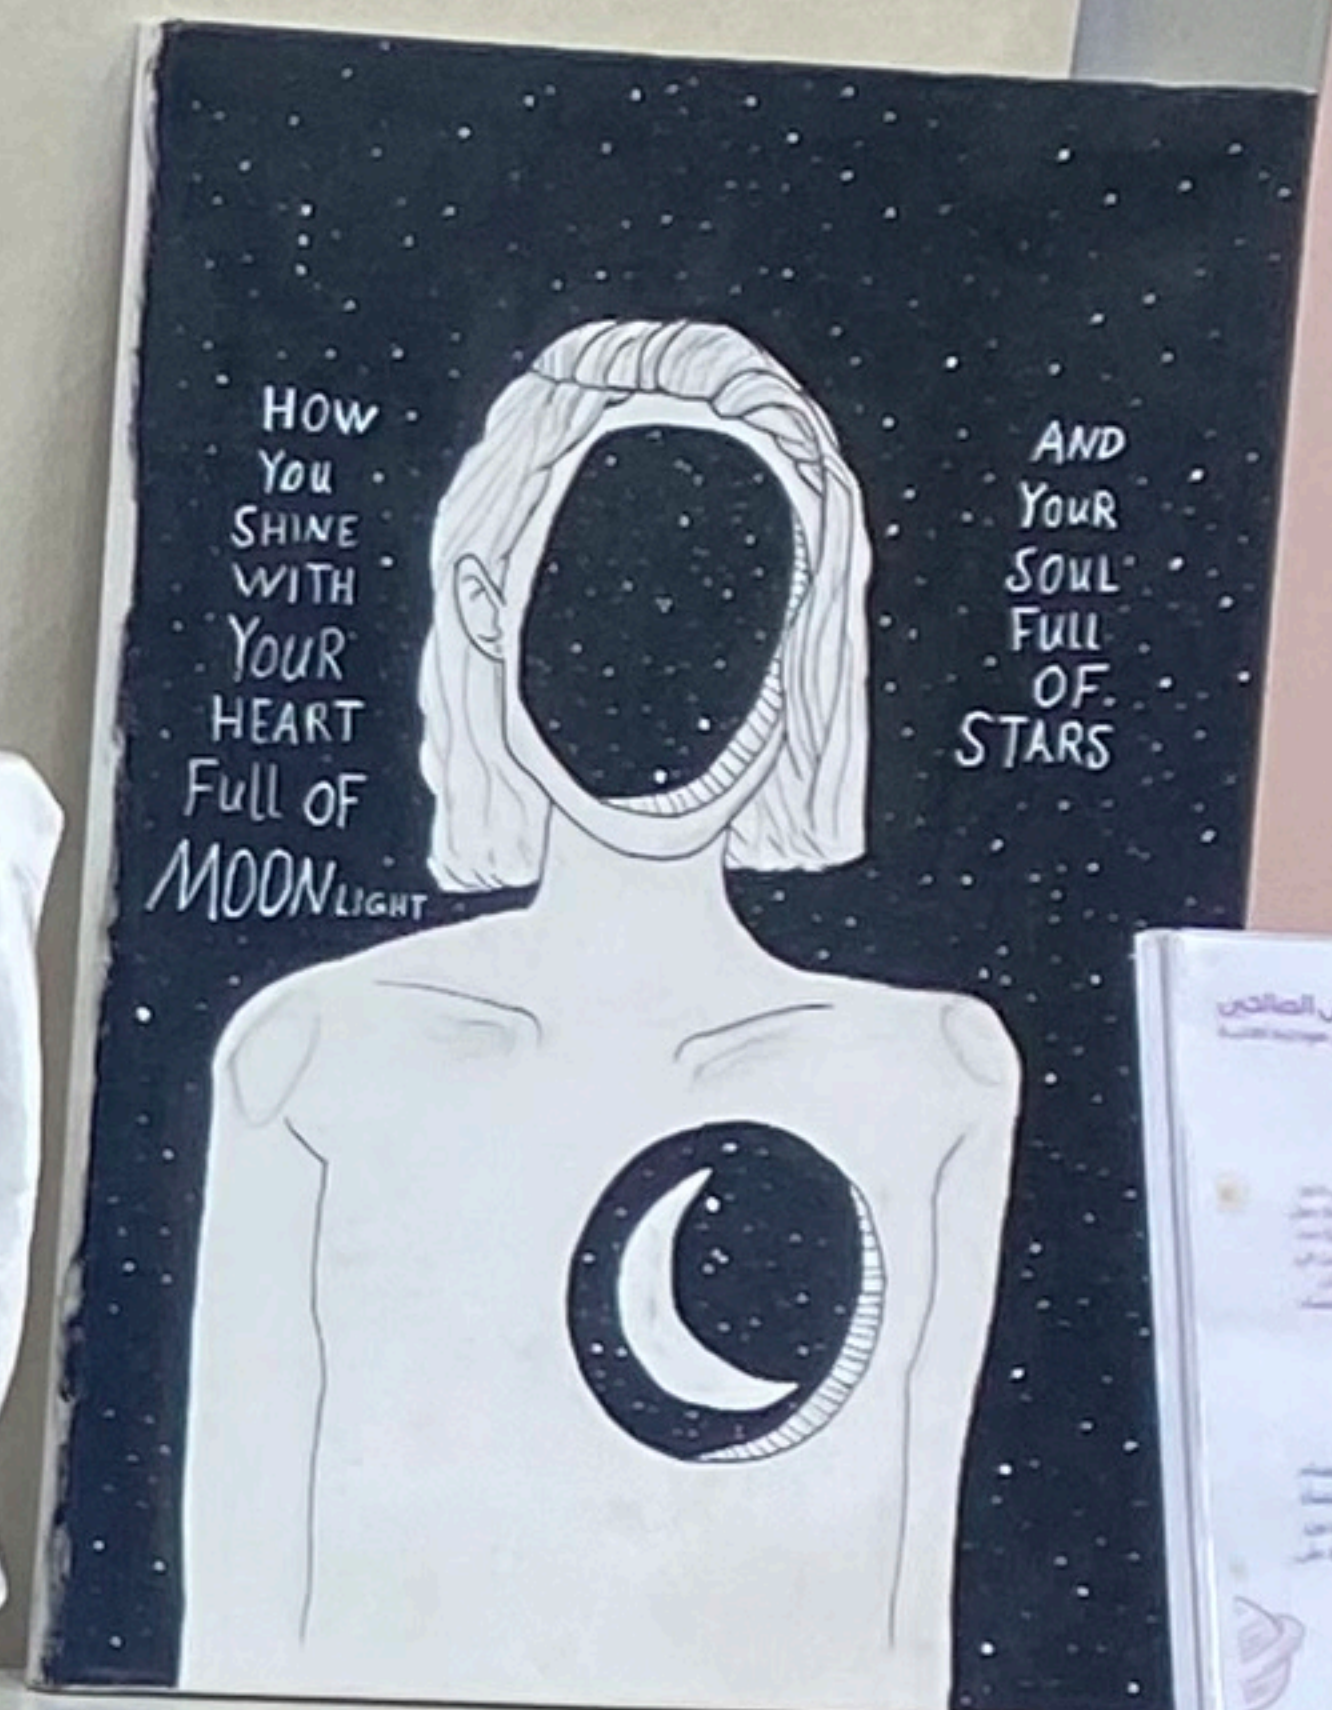 HOW
YOU
SHINE
WITH
YOUR
HEART
Full OF
MOONLIGHT
AND
YOUR
SOUL
FULL
OF
STARS
الصالحين